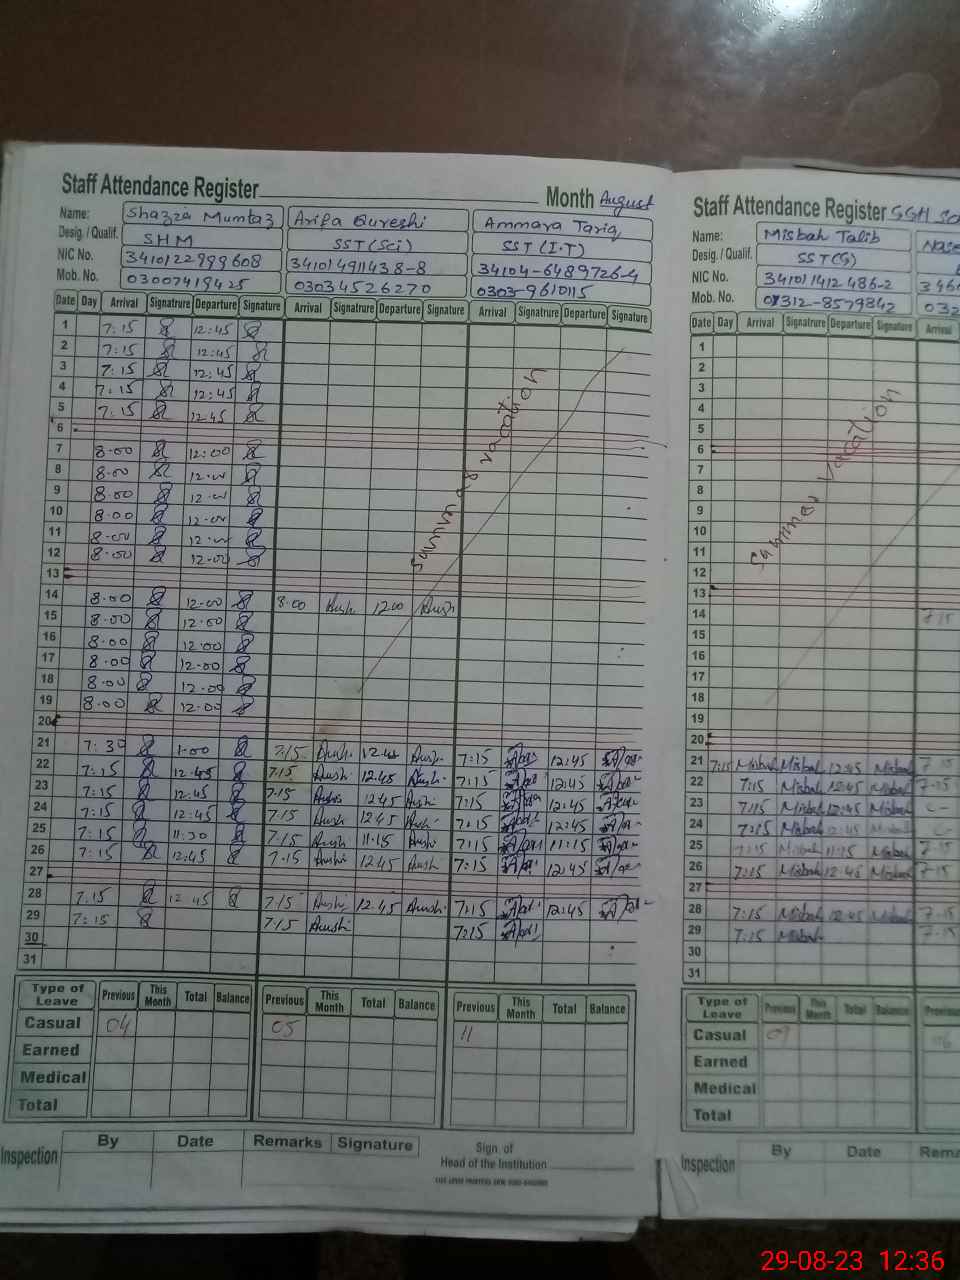 Staff Attendance Register Month August
Name: Shazia Mumtaz Arifa Qureshi Ammara Tariq
Desig. / Qualif. SHM SST(Sci) SST (I.T)
NIC No. 3410122999608 341014911438-8 34104-6489726-4
Mob. No. 03007419425 03034526270 0303-9610115
Date Day Arrival Signatrure Departure Signature Arrival Signatrure Departure Signature Arrival Signatrure Departure Signature
1 7:15 12:45
2 7:15 12:45
3 7:15 12:45
4 7:15 12:45
5 7:15 12:45
6
7 8.00 12:00
8 8.00 12.00
9 8.00 12.00
10 8.00 12.00
11 8.00 12.00
12 8.00 12.00
13
14 8.00 12.00 8.00 1200
15 8.00 12.00
16 8.00 12.00
17 8.00 12.00
18 8.00 12.00
19 8.00 12.00
20
21 7:30 1.00 7:15 12:45 7:15 12:45
22 7:15 12.45 7:15 12.45 7:15 12:45
23 7:15 12:45 7:15 12:45 7:15 12:45
24 7:15 12:45 7:15 12.45 7:15 12:45
25 7:15 11:30 7:15 11.15 7:15 11:15
26 7:15 12:45 7.15 12.45 7:15 12:45
27
28 7:15 12.45 7:15 12.45 7:15 12:45
29 7:15 7:15 7:15
30
31
vacation
Type of Leave Previous This Month Total Balance Previous This Month Total Balance Previous This Month Total Balance
Casual 04 05 11
Earned
Medical
Total
Inspection By Date Remarks Signature
Sign. of
Head of the Institution
Staff Attendance Register
Name: Misbah Talib
Desig. / Qualif. SST(G)
NIC No. 341011412486-2
Mob. No. 0312-8579842
Date Day Arrival Signatrure Departure Signature Arrival
1
2
3
4
5
6
7
8
9
10
11
12
13
14 7.15
15
16
17
18
19
20
21 7:15 Misbah Misbah 12:45 Misbah 7.15
22 7:15 Misbah 12:45 Misbah 7.15
23 7:15 Misbah 12:45 Misbah
24 7:15 Misbah 12:45 Misbah
25 7:15 Misbah 11:15 Misbah 7.15
26 7:15 Misbah 12:45 Misbah 7.15
27
28 7:15 Misbah 12:45 Misbah 7.15
29 7:15 Misbah 7.15
30
31
Summer vacation
Type of Leave Previous This Month Total Balance
Casual
Earned
Medical
Total
Inspection By Date
29-08-23 12:36